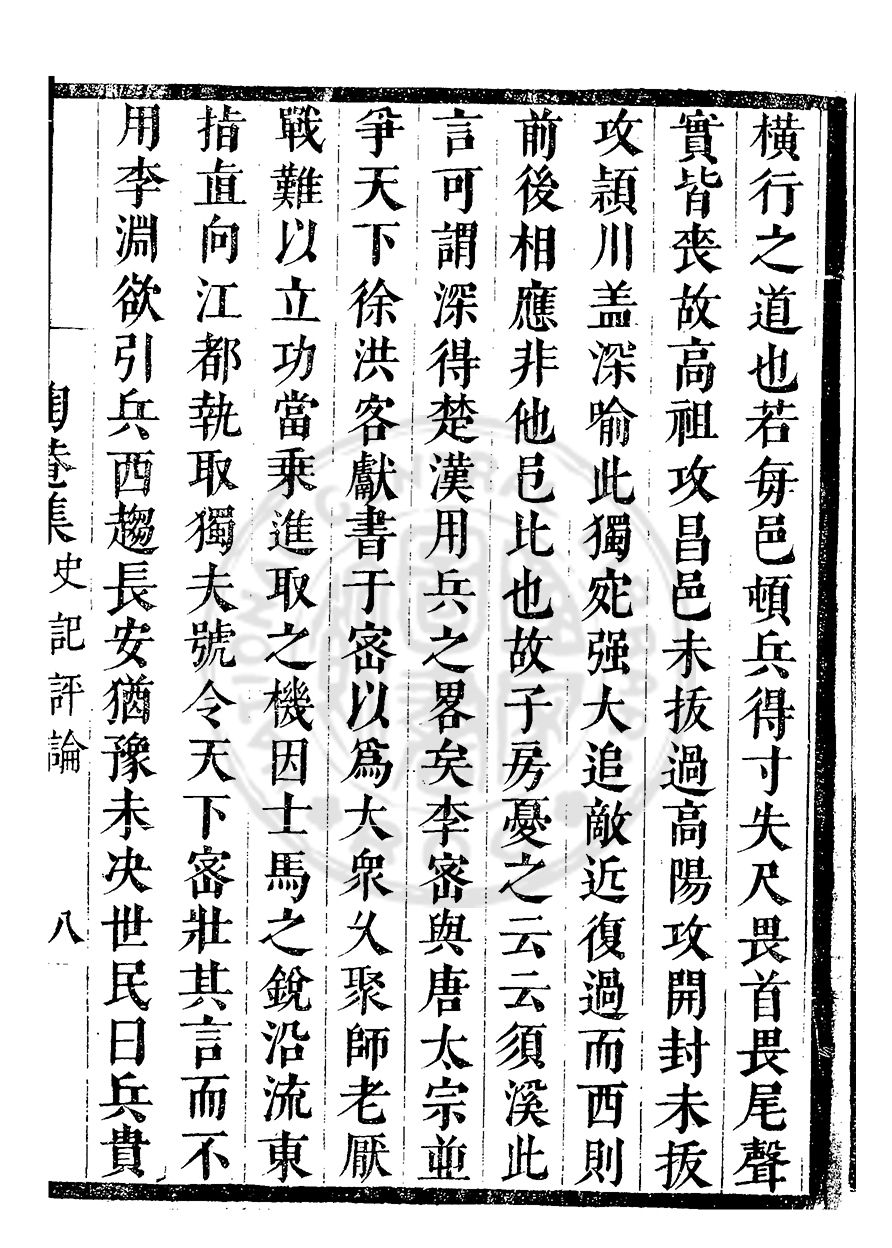 橫行之道也若每邑頓兵得寸失尺畏首畏尾聲
實皆喪故高祖攻昌邑未拔過高陽攻開封未拔
攻潁川盖深喻此獨宛强大追敵近復過而西則
前後相應非他邑比也故子房憂之云云須溪此
言可謂深得楚漢用兵之畧矣李密與唐太宗並
爭天下徐洪客獻書于密以爲大衆乆聚師老厭
戰難以立功當乘進取之機因士馬之銳沿流東
指直向江都執取獨夫號令天下密壯其言而不
用李淵欲引兵西趨長安猶豫未决世民曰兵貴
陶菴集史記評論 八